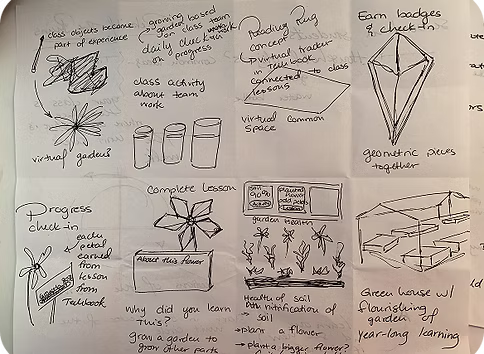 class objects become
part of experience
virtual gardens
growing
garden based
on class team
work
daily check in
on progress
class activity
about team
work
Reading Rug
concept
virtual tracker
in Techbook
connected to class
lessons
virtual common
space
Earn badges
& check-in
geometric pieces
together
Progress
check-in
each
petal
earned
from
lesson
from
Techbook
Complete Lesson
About this flower
Why did you learn
this?
grow a garden to
grow other parts
garden health
Health of soil
nitrification of
soil
→ plant a flower
→ plant a bigger flower?
Green house w/
flourishing
garden of
year-long learning